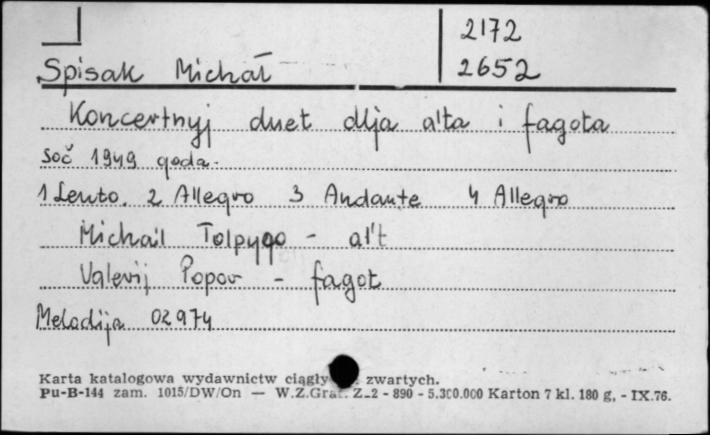 2172
2652
Spisak Michał
Koncertnyj duet dlja al'ta i fagota
Soč 1949 goda.
1 Lento. 2 Allegro 3 Andante 4 Allegro
Michail Tolpygo - al't
Valerij Popov - fagot
Melodija 02974
Karta katalogowa wydawnictw ciągły zwartych.
Pu-B-144 zam. 1015/DW/On — W.Z.Graf. Z-2 - 890 - 5.300.000 Karton 7 kl. 180 g, - IX.76.